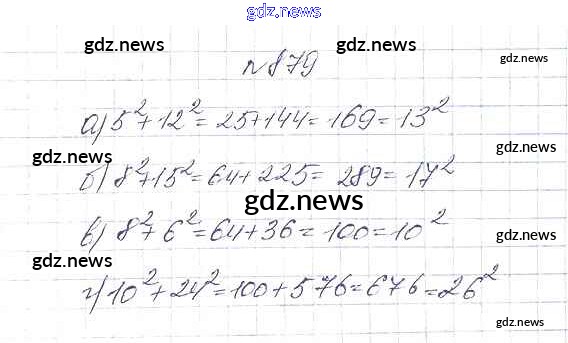 gdz.news
gdz.news gdz.news
№879
gdz.news
а) 5²+12²=25+144=169=13²
gdz.news gdz.news
б) 8²+15²=64+225=289=17²
gdz.news
в) 8²+6²=64+36=100=10²
gdz.news
gdz.news
г) 10²+24²=100+576=676=26²
gdz.news
gdz.news